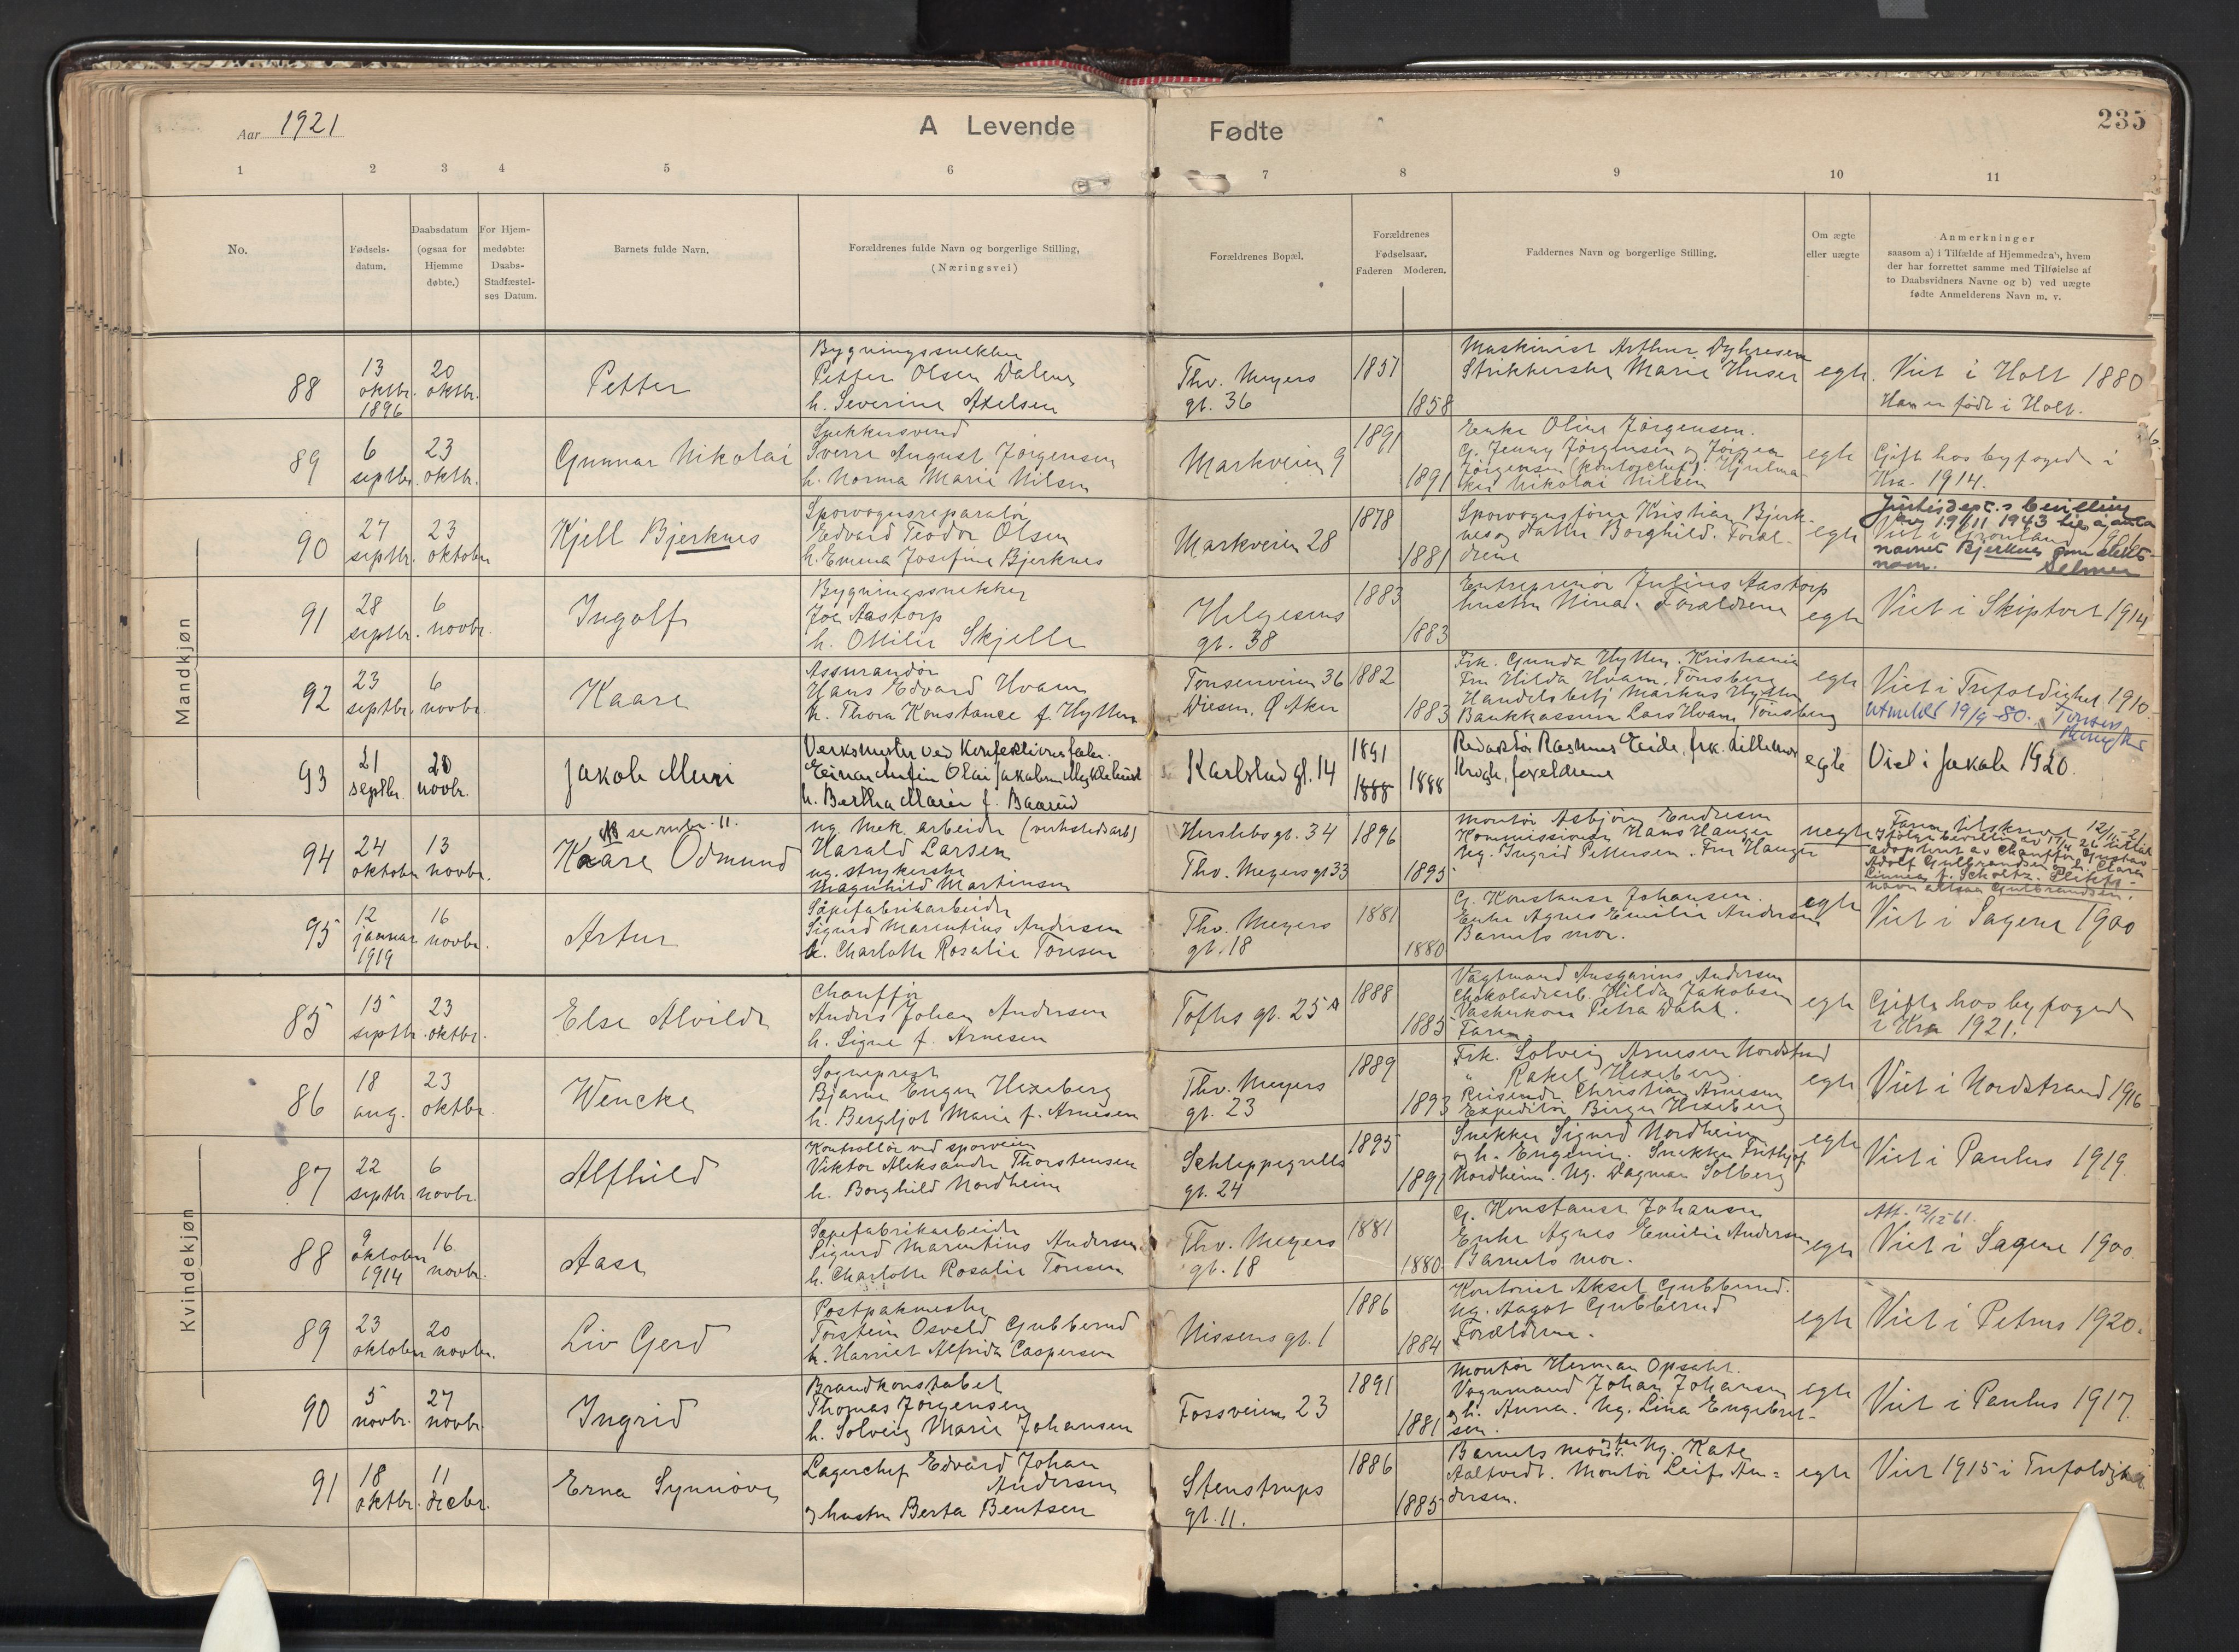 Aar 1921
A Levende
Fødte
235
1 2 3 4 5 6 7 8 9 10 11
No.
Fødsels-
datum.
Daabsdatum
(ogsaa for
Hjemme
døbte.)
For Hjem-
medøbte:
Daabs-
Stadfæstel-
ses Datum.
Barnets fulde Navn.
Forældrenes fulde Navn og borgerlige Stilling,
(Næringsvei)
Forældrenes Bopæl.
Forældrenes
Fødselsaar.
Faderen Moderen.
Faddernes Navn og borgerlige Stilling.
Om ægte
eller uægte
Anmerkninger
saasom a) i Tilfælde af Hjemmedaab, hvem
der har forrettet samme med Tilføielse af
to Daabsvidners Navne og b) ved uægte
fødte Anmelderens Navn m. v.
Mandkjøn
88
13
oktbr.
1896
20
oktbr.
Petter
Bygningssnekker
Petter Olsen Dalene
h. Severine Axelsen
Thv. Meyers
gt. 36
1857
1858
Maskinist Arthur
Strikkerske Marie Huser
egte
Viet i Holt 1880
Han er født i Holt.
89
6
septbr.
23
oktbr.
Gunnar Nikolai
Snekkersvend
Sverre August Jørgensen
h. Norma Marie Nilsen
Markveien 9
1891
1891
Enke Oline Jørgensen.
G. Jenny Jørgensen og Jørgen
Jørgensen (kontorchef). Hjulma-
ker Nikolai Nilsen
egte
Gift hos byfogden i
Kra. 1914.
90
27
septbr.
23
oktober
Kjell Bjerknes
Sporvognsreparatør
Edvard Teodor Olsen
h. Emma Josefine Bjerknes
Markveien 28
1878
1881
Sporvognsfører Kristian Bjerk-
nes og datter Borghild. Foræl-
drene
egte
Justisdept.s bevilling
av 19/11 1943 til å anta
Viet i Grønland
navnet Bjerknes som slekts-
navn. Selmer
91
28
septbr.
6
novbr.
Ingolf
Bygningssnekker
Joe Aastorp
h. Ottilie Skjelle
Helgesens
gt. 38
1883
1883
Entreprenør Julius Aastorp
hustru Nina. Forældrene
egte
Viet i Skiptvet 1914
92
23
septbr.
6
novbr.
Kaare
Assurandør
Hans Edvard Hvam
h. Thora Konstance f. Hytten
Tonsenveien 36
Disen, Ø Aker
1882
1883
Frk. Gunda Hytten. Kristiania
Fru Hilda Hvam, Tønsberg
Handelsbetj Markus Hytten
Bankkasserer Lars Hvam, Tønsberg
egte
Viet i Trefoldighet 1910.
Utmeldt 19/9-80.
93
21
septbr.
20
novbr.
Jakob Muri
Verksmester ved
Einar Anton Olai Jakobsen Myklebust
h. Bertha Marie f. Baarud
Karlstad gt. 14
1891
1888
1888
Redaktør Rasmus Eide, frk.
Krogh, foreldrene
egte
Viet i Jakob 1920.
94
24
oktober
13
novbr.
se rubr. 11.
Kaare Odmund
ug. Mek. arbeider (verkstedsarb)
Harald Larsen
ug. strykerske
Magnhild Martinsen
Herslebs gt. 34
Thv. Meyers gt 33
1896
1895
Montør Asbjørn Endresen
Kommissionær Hans Hauger
Ug. Ingrid Pettersen. Fru Hauger
uegte
12/11-21
adoptert av Chauffør Gustav
Adolf Gulbrandsen og h. Clara
Linnea f. Scholtz. Slekts-
navn altsaa Gulbrandsen.
95
12
januar
1919
16
novbr.
Artur
Såpefabrikarbeider
Sigurd Marentius Andersen
h. Charlotte Rosalie Toresen
Thv. Meyers
gt. 18
1881
1880
G. Konstanse Johansen.
Enke Agnes Emilie Andersen
Barnets mor.
egte
Viet i Sagene 1900
Kvindekjøn
85
15
septbr.
23
oktbr.
Else Alvilde
Chauffør
Anders Johan Andersen
h. Signe f. Arnesen
Toftes gt. 25 A
1888
1885
Vagtmand Ansgarius Andersen
Chokoladearb. Hilda Jakobsen
Vaskerkone Petra Dahl.
Faren
egte
Gifte hos byfogden
i Kra 1921.
86
18
aug.
23
oktbr.
Wencke
Sogneprest
Bjarne Eugen Hexeberg
h. Bergljot Marie f. Arnesen
Thv. Meyers
gt. 23
1889
1893
Frk. Solveig Arnesen Nordstrand
" Rakel Hexeberg.
Reisende Christian Arnesen
Expeditør Birger Hexeberg
egte
Viet i Nordstrand 1916
87
22
septbr
6
novbr.
Alfhild
Kontrollør ved sporveien
Viktor Aleksander Thorstensen
h. Borghild Nordheim
Schleppegrells
gt. 24
1895
1891
Snekker Sigurd Nordheim
og h. Eugenie. Snekker Frithjof
Nordheim. Ug. Dagmar Solberg
egte
Viet i Paulus 1919.
88
9
oktober
1914
16
novbr.
Aase
Sæpefabrikarbeider
Sigurd Marentius Andersen
h. Charlotte Rosalie Toresen
Thv. Meyers
gt. 18
1881
1880
G. Konstanse Johansen
Enke Agnes Emilie Andersen
Barnets mor.
egte
Att. 12/12-61.
Viet i Sagene 1900.
89
23
oktober
20
novbr.
Liv Gjerd
Postpakmester
Torstein Osvald Gubberud
h. Harriet Alfrida Caspersen
Nissens gt. 1
1886
1884
Kontorist Aksel Gubberud.
Ug. Aagot Gubberud
Forældrene.
egte
Viet i Petrus 1920.
90
5
novbr.
27
novbr.
Ingrid
Brandkonstabel
Thomas Jørgensen
h. Solveig Marie Johansen
Fossveien 23
1891
1881
Montør Herman Opsahl.
Vognmand Johan Johansen
og h. Anna. Ug. Lina Engebret-
sen.
egte
Viet i Paulus 1917.
91
18
oktbr.
11
decbr.
Erna Synnøve
Lagerchef Edvard Johan
Andersen
og hustru Berta Bentsen
Stenstrups
gt. 11.
1886
1885
Barnets mor og far. Ug. Kate
Aaltvedt. Montør Leif An=
dersen.
egte
Viet 1915 i Trefoldighet